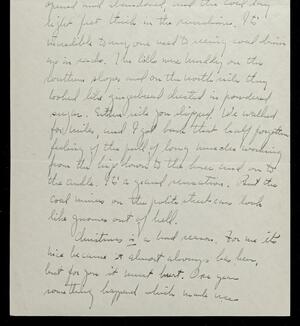 opened and abandoned, and the coal dry
light just stuck in the sunshine. It's
incredible to any one used to seeing coal brim
up in sacks. The hills were muddy on the
southern slopes and on the north side they
looked like gingerbread dusted in powdered
sugar. Either side you slipped. We walked
for miles, and I got back that half forgotten
feeling of the pull of long muscles working
from the hip down to the knee and on to
the ankle. It's a grand sensation. But the
coal miners on the polite street cars look
like gnomes out of hell.
Christmas is a bad season. For me it's
nice because it almost always has been,
but for you it must hurt. One year
something happened which made me